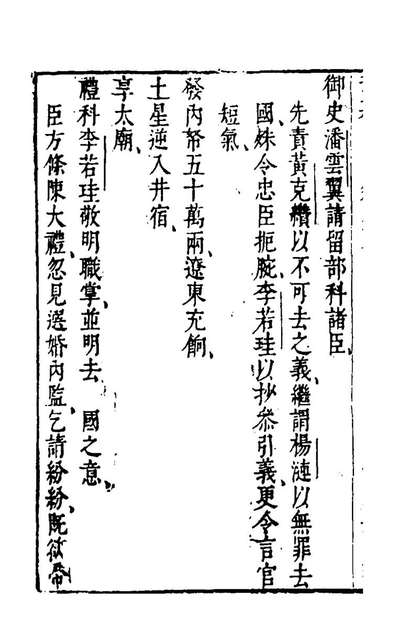 御史潘雲翼請留部科諸臣、
先責黃克纘以不可去之義、繼謂楊漣以無罪去
國、殊令忠臣扼腕、李若珪以抄叅引義、更令言官
短氣、
發內帑五十萬兩、遼東充餉、
土星逆入井宿、
享太廟、
禮科李若珪敬明職掌、並明去　國之意、
臣方條陳大禮、忽見選婚內監、乞請紛紛、旣欲帶